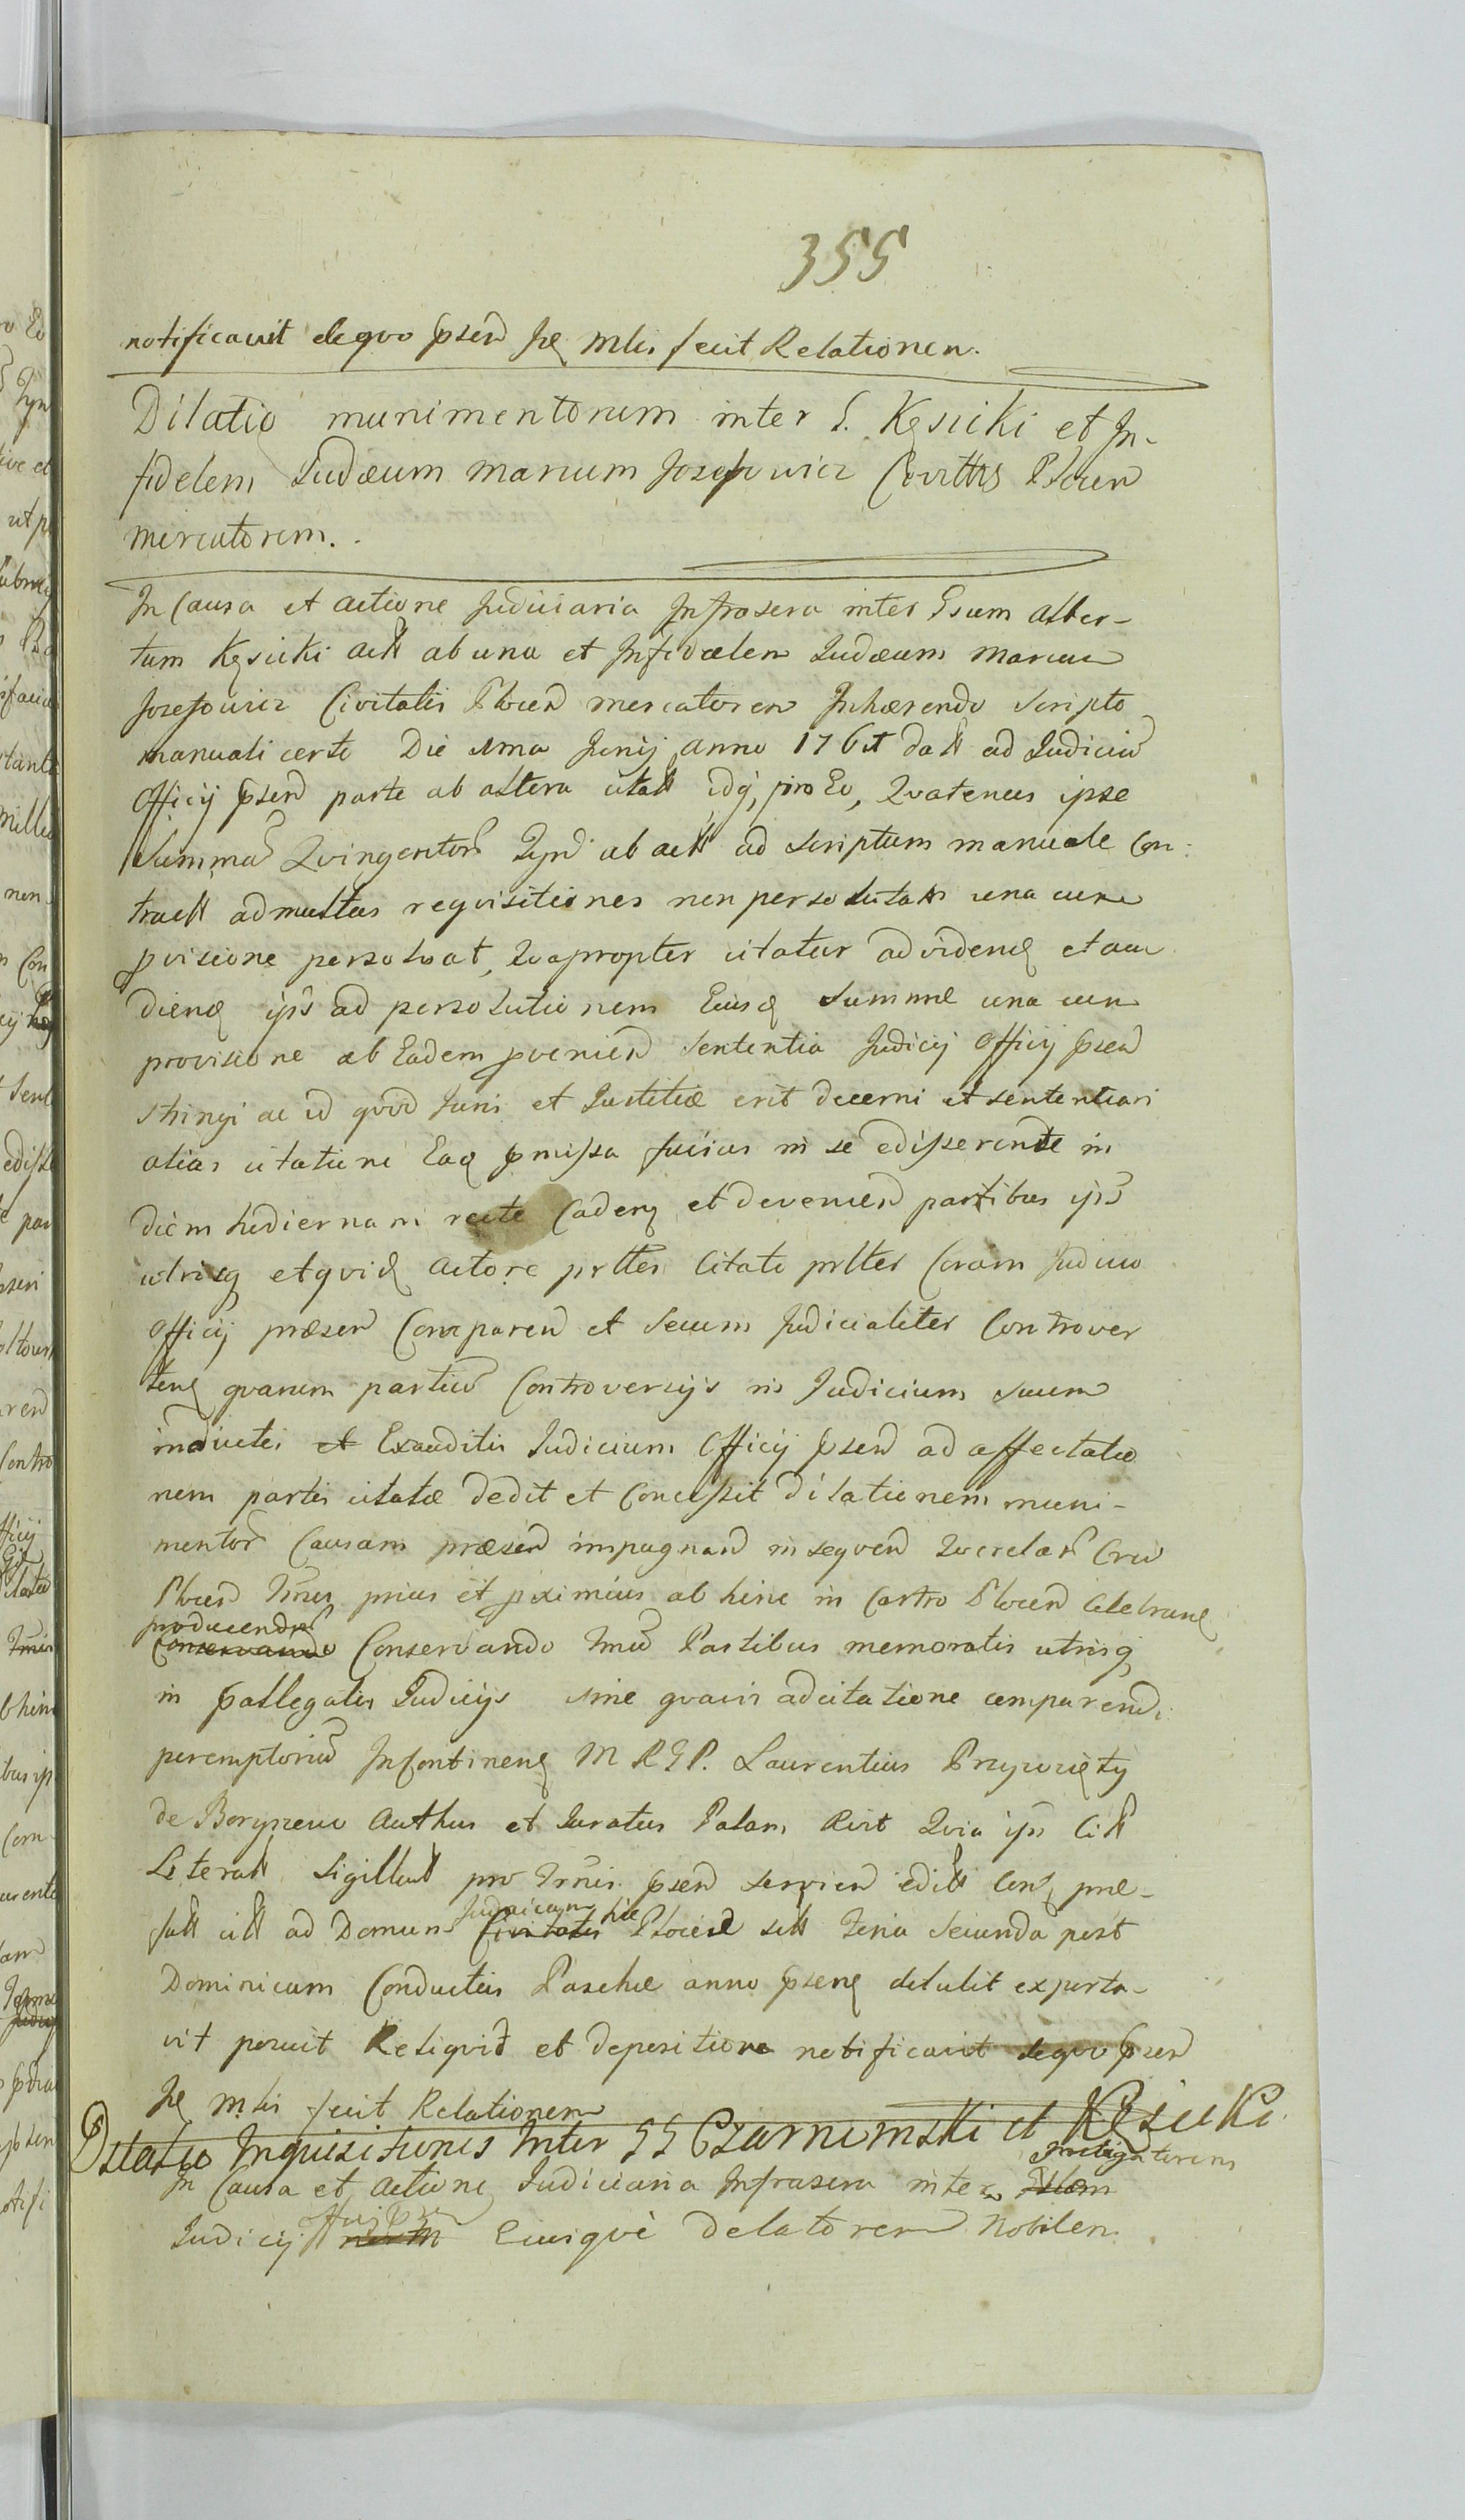 355
notificavit de quo psen Jg Mlis fecit Relationem.
Dilatio munimentorum inter G. Kęsicki et In-
fidelem Judæum Marcum Josefowicz Civittis Plocen
mercatorem..
In Causa et actione Judiciaria Infrascra inter Gsum Alber-
tum Kęsicki actt ab una et Infidælem Judæum Marcum
Josefowicz Civitatis Plocen mercatorem Inhærendo Scripto
manuali certo Die 1ma Junij anno 176 datt ad Judiciu
Officij psen parte ab altera citatt idq, pro Eo, Quatenus ipse
Summa Quingentor Tynf ab actt ad scriptum manuale Con:
tractt ad multas requisitiones non persolutatt una cum
pvisione persolvat, Quapropter citatur ad videnḍ et au
dienḍ ips ad persolutionem Ejusḍ Summæ una cum
provisione ab Eadem pvenien Sententia Judicij Officij psen
stringi ac id quod Juris et Justitiæ erit decerni et sententiari
alias citatione Eaḍ pmissa fusius in se edisserente in
diem hodiernam recte Cadenḍ et devenien partibus ips
utrisq et quidḍ Actore prlter Citato prlter Coram Judicio
Officij præsen Comparen et Secum Judicialiter Controver
tenḍ quarum partiu Controversijs in Judicium suum
inductis et Exauditis Judicium Officij psen ad affectatio
nem partis citatæ dedit et Concessit dilationem muni-
mentor Causam præsen impugnan in sequen Querelar Crer
Plocen Tmis prius et pximius ab hinc in Castro Plocen Celebranḍ
producendor
Conservando Conservando Tmu Partibus memoratis utrisq
in pallegatis Judicijs sine quavis adcitatione comparendi
peremptoriu Incontinenḍ M R G P. Laurentius Przywięty
de Borypzewo Authus et Juratus Palam Rcit Quia ips Citt
Literatt Sigillatt pro Trmis psen servien editt Conḍ præ-
fatt citt ad Domum Judaicam hic Civitatis Plocen sitt Feria Secunda post
Dominicam Conductus Paschæ anno psenḍ detulit exporta-
vit posuit Reliquid et depositione notificavit de quo psen
Jg Mlis fecit Relationem
Dilatio Inquisitionis Inter GG Czarnomski et Kęsicki
In Causa et actione Judiciaria Infrascra inter Instigatorem
Judicij Officij psen Ejusque delatorem Nobilem